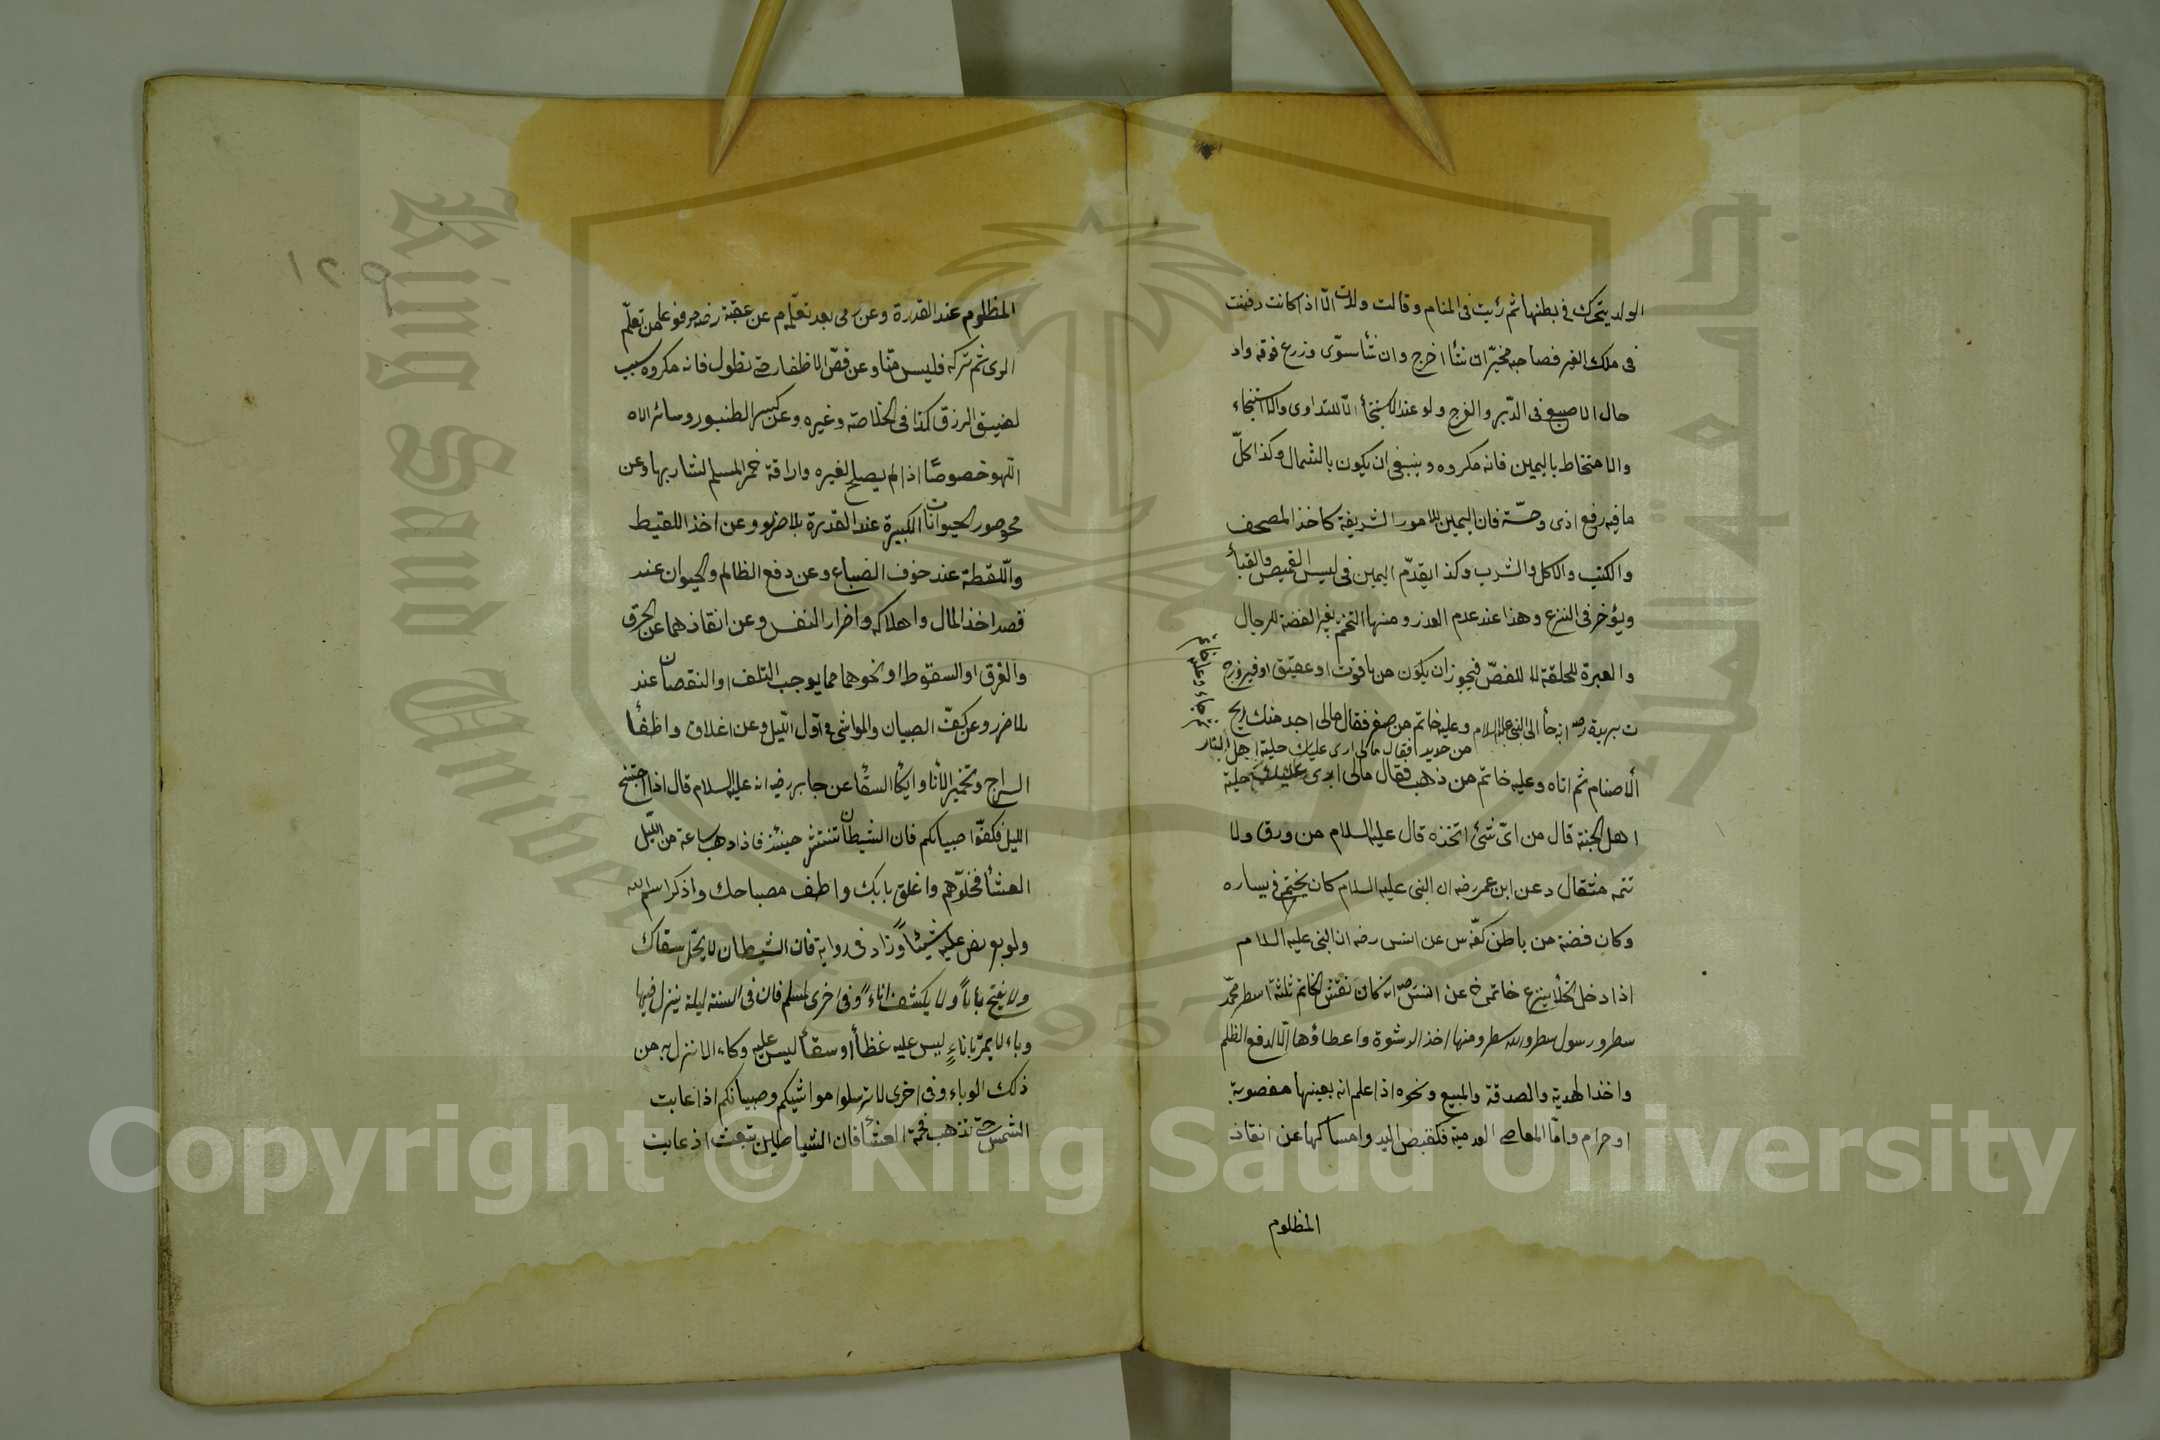 الولد يتحرك في بطنها ثم رئيت في المنام وقالت ولدت الا اذا كانت دفنت
في ملك الغير فصاحبه مخيّر ان شأ اخرج وان شأ سوّى وزرع فوقه واد
حال الاصبع في الدّبر والفرج ولو عند الاستنجأ الا للتداوى والاستنجاء
والامتخاط باليمين فانه مكروه وينبغى ان يكون بالشمال وكذا كلّ
ما فيه رفع اذى وخسّة فان اليمين للامور الشريفة كاخذ المصحف
والكتب والاكل والشرب وكذا يقدّم اليمين في لبس القميص والقبأ
ويؤخر في النزع وهذا عند عدم العذر ومنها التختم بغير الفضة للرجال
والعبرة للحلقة لا للفصّ فيجوز ان يكون من ياقوت او عقيق او فيروزج
ت بريدة رض انه جأ الى النبى عليه السلام وعليه خاتم من صفر فقال مالى اجد منك ريح
من حديد فقال مالى ارى عليك حلية اهل النار
ثم جاء وعليه خاتم
الاصنام ثم اتاه وعليه خاتم من ذهب فقال مالى ارى عليك حلية
اهل الجنة قال من اىّ شئ اتخذه قال عليه السلام من ورق ولا
تتمه مثقال د عن ابن عمر رضه ان النبى عليه السلام كان يختتم في يساره
وكان فضة من باطن كفّه س عن انس رضه ان النبى عليه السلام
اذا دخل الخلأ ينزع خاتمه خ عن انس رض انه كان نقش الخاتم ثلثة اسطر محمّد
سطر ورسول سطر والله سطر ومنها اخذ الرشوة واعطاؤها الّا لدفع الظلم
واخذ الهدية والصدقة والمبيع ونحوه اذا علم انه بعينها مغصوبة
او حرام وامّا المعاصى العدمية فكقبض اليد وامساكها عن انقاذ
المظلوم
١٢٥
المظلوم عند القدرة وعن رمى بعد تعلّمه م عن عقبة رضه مرفوعا من تعلّم
الرمى ثم تركه فليس منّا وعن قصّ الاظفار حتى تطول فانه مكروه سبب
لضيق الرزق كذا في الخلاصة وغيره وعن كسر الطنبور وسائر الاه
اللهو خصوصًا اذا لم يصلح لغيره واراقة خمر المسلم لشاربها وعن
محو صور الحيوانات الكبيرة عند القدرة بلا ضرر وعن اخذ اللقيط
واللّقطة عند خوف الضياع وعن دفع الظالم والحيوان عند
قصد اخذ المال واهلاكه واضرار النفس وعن انقاذهما عن الحرق
والغرق او السقوط او نحوهما مما يوجب التلف او النقصان عند
بلا ضرر وعن كفّ الصبيان والمواشى في اوّل اللّيل وعن اغلاق واطفأ
السراج وتخمير الانأ وايكأ السقأ عن جابر رضه انه عليه السلام قال اذا استجنح
الليل فكفّوا صبيانكم فان الشيطان تنتشر حينئذ فاذا ذهب ساعة من اللّيل
العشأ فخلوّهم واغلق بابك واطف مصباحك واذكر اسم الله
ولو بعرض عليه شيئاً وزاد في رواية فان الشيطان لا يحّل سقاك
ولا يفتح باباً ولا يكشف اناءً وفي اخرى لمسلم فان في السنة ليلة ينزل فيها
وباء لا يمرّ باناءٍ ليس عليه غطأ او سقأ ليس عليه وكاء الا نزل به من
ذلك الوباء وفي اخرى لا ترسلوا مواشيكم وصبيانكم اذا غابت
الشمس حتى تذهب فحمة العشأ فان الشياطين تبعث اذ غابت
Copyright © King Saud University
King Saud University
1957